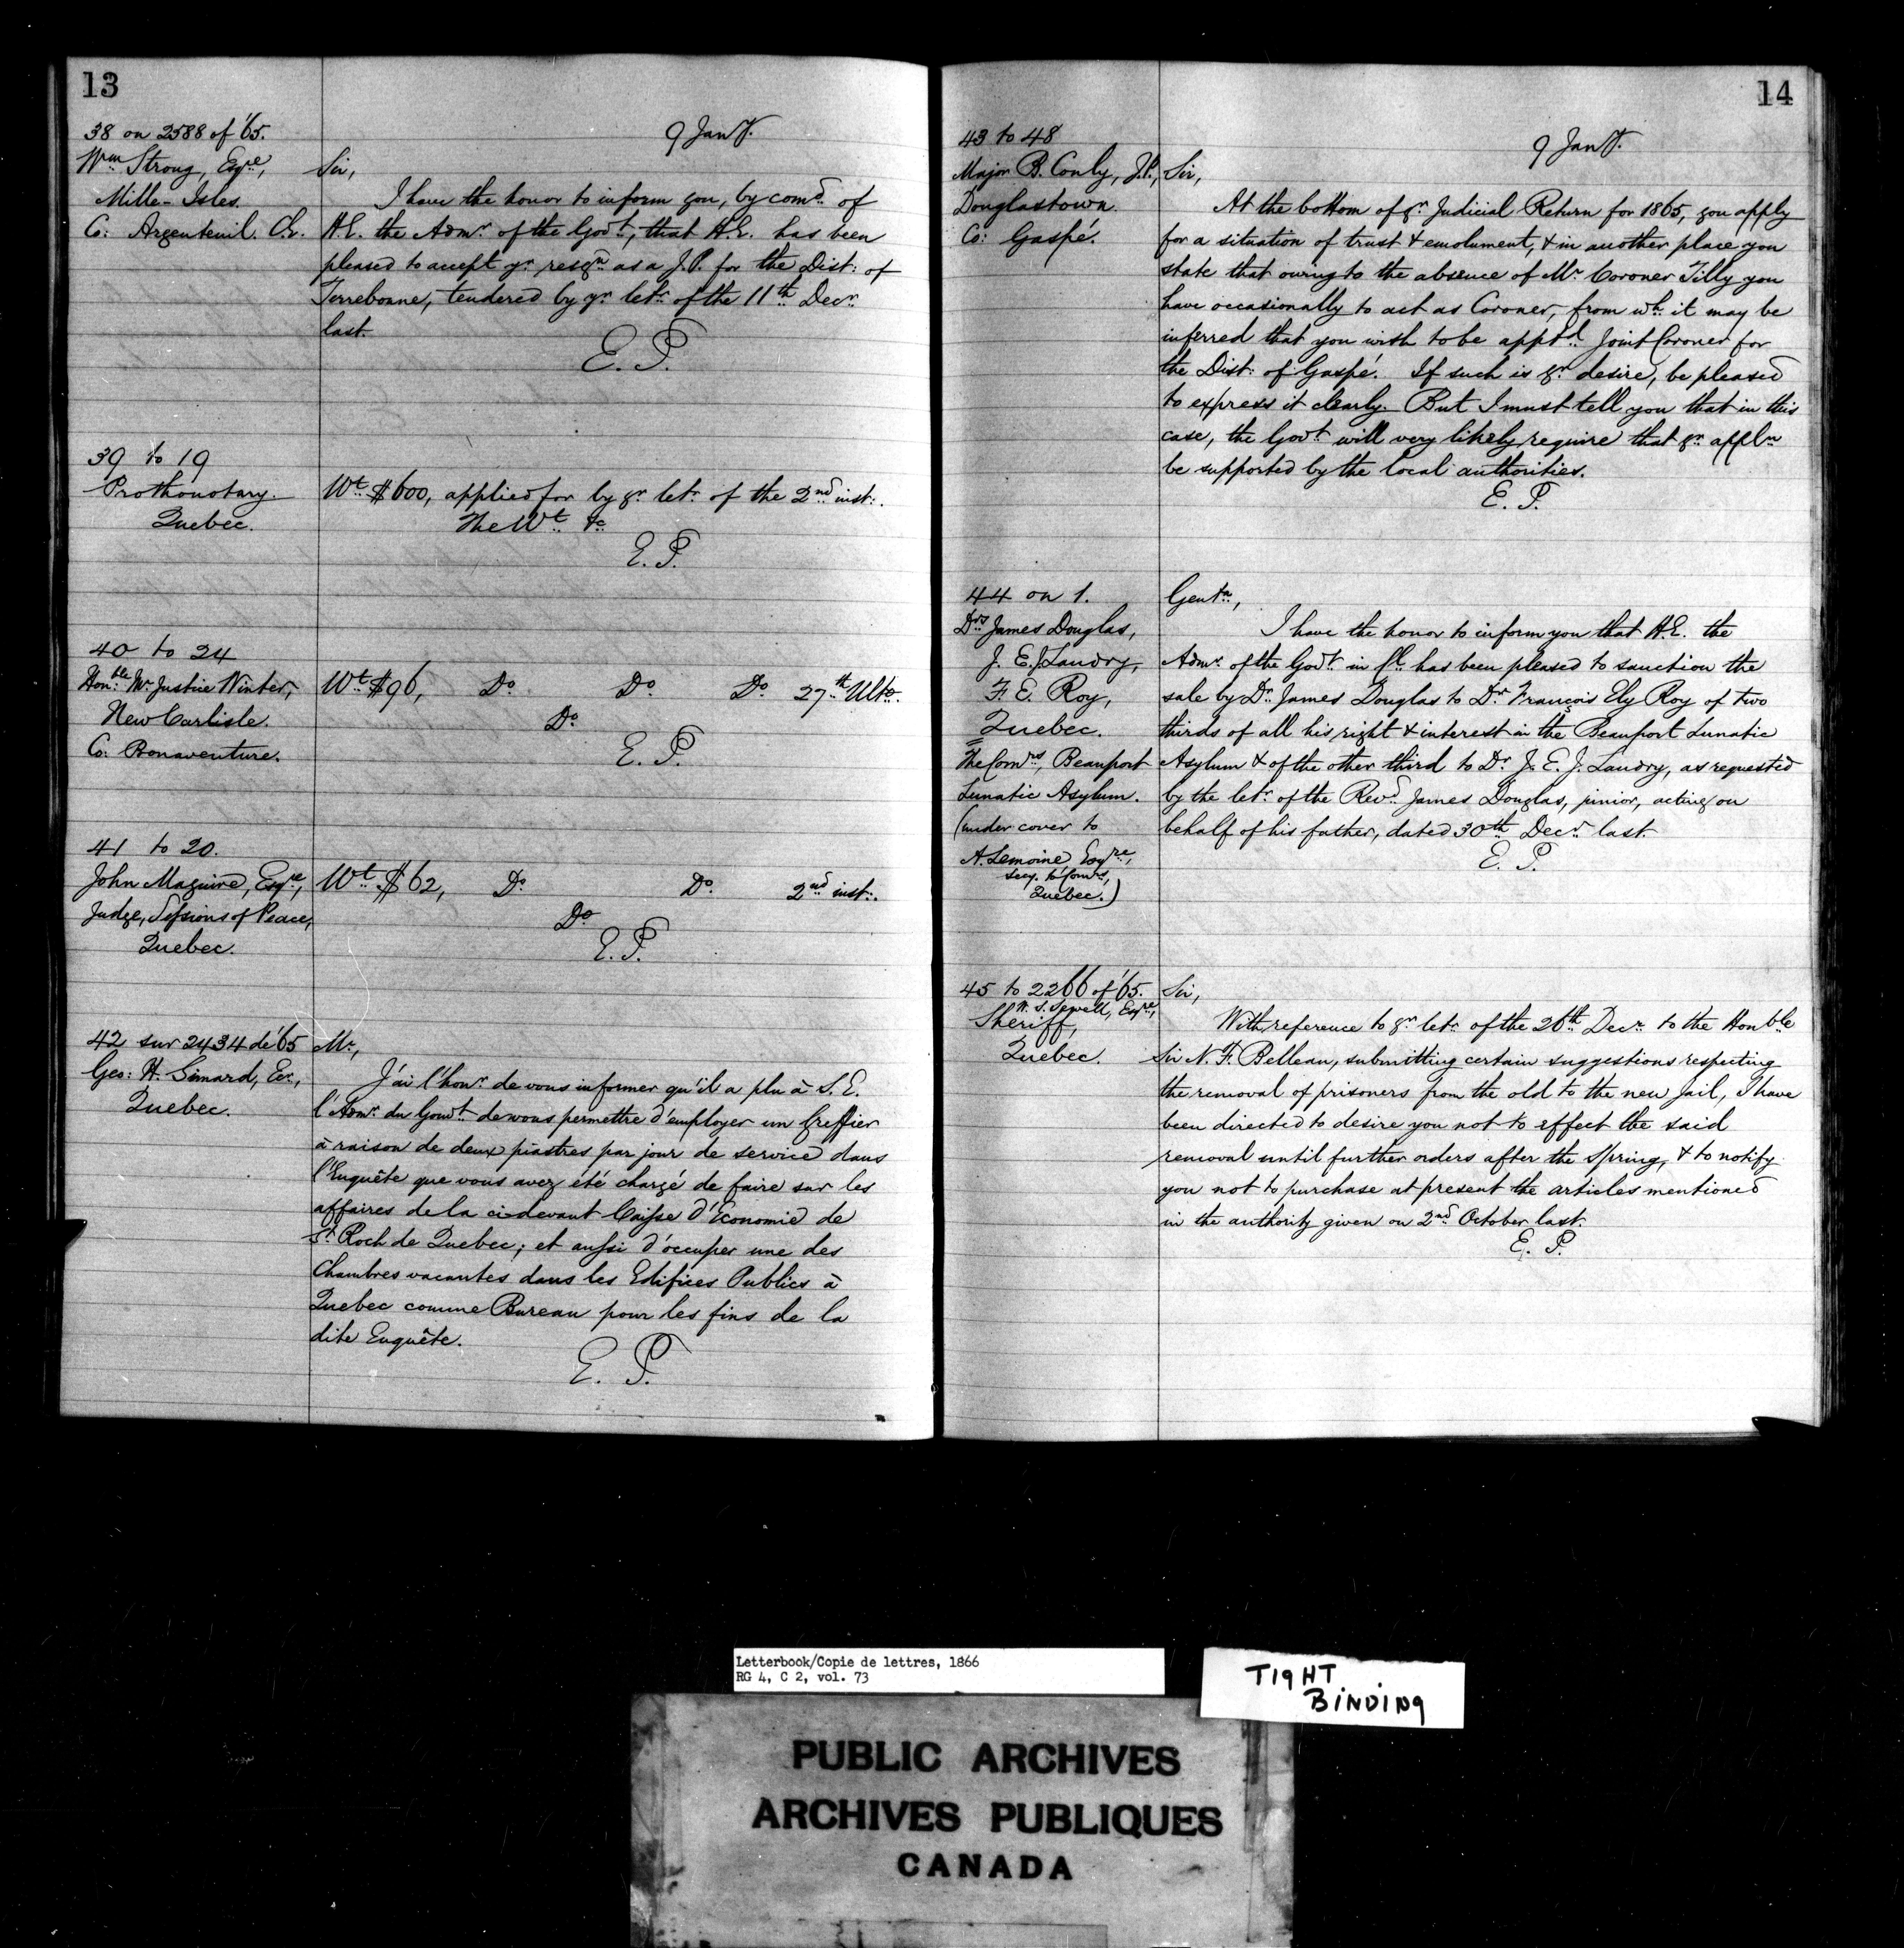 13
9 Jany.
38 on 2588 of '65.
Wm Strong, Esqre,
Mille-Isles.
Co: Argenteuil. C.E.
Sir,
I have the honor to inform you, by comd. of
H.E. the Admr. of the Govt., that H.E. has been
pleased to accept yr resign as a J.P. for the Dist: of
Terrebonne, tendered by yr letr. of the 11th Decr.
last.
E. P.
39 to 19
Prothonotary.
Quebec.
Wt. $600, applied for by yr letr. of the 2nd inst:.
The Wt. &c
E. P.
40 to 24
Honble. Mr Justice Winter,
New Carlisle.
Co: Bonaventure.
Wt. $96, Do. Do. Do. 27th Ulto.
Do.
E. P.
41 to 20.
John Maguire, Esqre,
Judge, Sessions of Peace,
Quebec.
Wt. $62, Do. Do. 2nd inst:.
Do
E. P.
42 sur 2434 de '65
Geo: H. Simard, Ecr.,
Quebec.
Mr.,
J'ai l'honr. de vous informer qu'il a plu à S. E.
l'Admr. du Gouvt. de vous permettre d'employer un Greffier
à raison de deux piastres par jour de service dans
l'Enquête que vous avez été chargé de faire sur les
affaires de la ci-devant Caisse d'Economie de
St. Roch de Quebec; et aussi d'occuper une des
Chambres vacantes dans les Edifices Publics à
Quebec comme Bureau pour les fins de la
dite Enquête.
E. P.
14
9 Jany.
43 to 48
Major B. Conly, J.P.,
Douglastown.
Co: Gaspé.
Sir,
At the bottom of yr. Judicial Return for 1865, you apply
for a situation of trust & emolument, & in another place you
state that owing to the absence of Mr. Coroner Tilly you
have occasionally to act as Coroner, from wh. it may be
inferred that you wish to be apptd. Joint Coroner for
the Dist: of Gaspé. If such is yr. desire, be pleased
to express it clearly. But I must tell you that in this
case, the Govt. will very likely require that yr. appln
be supported by the local authorities.
E. P.
44 on 1.
Drs James Douglas,
J. E. J. Landry,
F. E. Roy,
Quebec.
The Comrs, Beauport
Lunatic Asylum.
(under cover to
A. Lemoine, Esqre,
secy. to Comrs,
Quebec.)
Gentn,
I have the honor to inform you that H.E. the
Admr. of the Govt. in Cl. has been pleased to sanction the
sale by Dr. James Douglas to Dr François Ely Roy of two
thirds of all his right & interest in the Beauport Lunatic
Asylum & of the other third to Dr J. E. J. Landry, as requested
by the letr. of the Revd. James Douglas, junior, acting on
behalf of his father, dated 30th Decr. last.
E. P.
45 to 2266 of '65.
W. S. Sewell, Esqre,
Sheriff,
Quebec.
Sir,
With reference to yr. letr. of the 26th Decr. to the Honble
Sir N. F. Belleau, submitting certain suggestions respecting
the removal of prisoners from the old to the new Jail, I have
been directed to desire you not to effect the said
removal until further orders after the Spring, & to notify
you not to purchase at present the articles mentioned
in the authority given on 2nd October last.
E. P.
Letterbook/Copie de lettres, 1866
RG 4, C 2, vol. 73
TIGHT
BINDING
PUBLIC ARCHIVES
ARCHIVES PUBLIQUES
CANADA